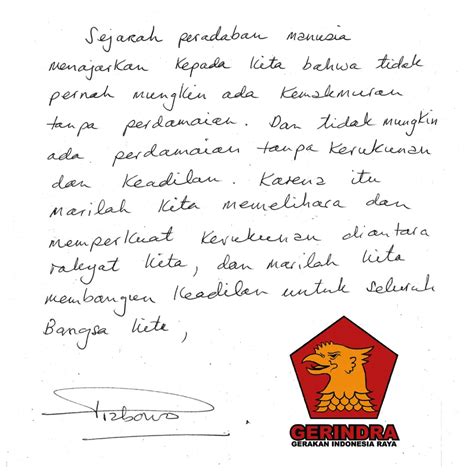 Sejarah peradaban manusia
menajarkan kepada kita bahwa tidak
pernah mungkin ada kemakmuran
tanpa perdamaian. Dan tidak mungkin
ada perdamaian tanpa kerukunan
dan keadilan. Karena itu
marilah kita memelihara dan
memperkuat kerukunan diantara
rakyat kita, dan marilah kita
membangun keadilan untuk seluruh
Bangsa kita,
Prabowo
GERINDRA
GERAKAN INDONESIA RAYA